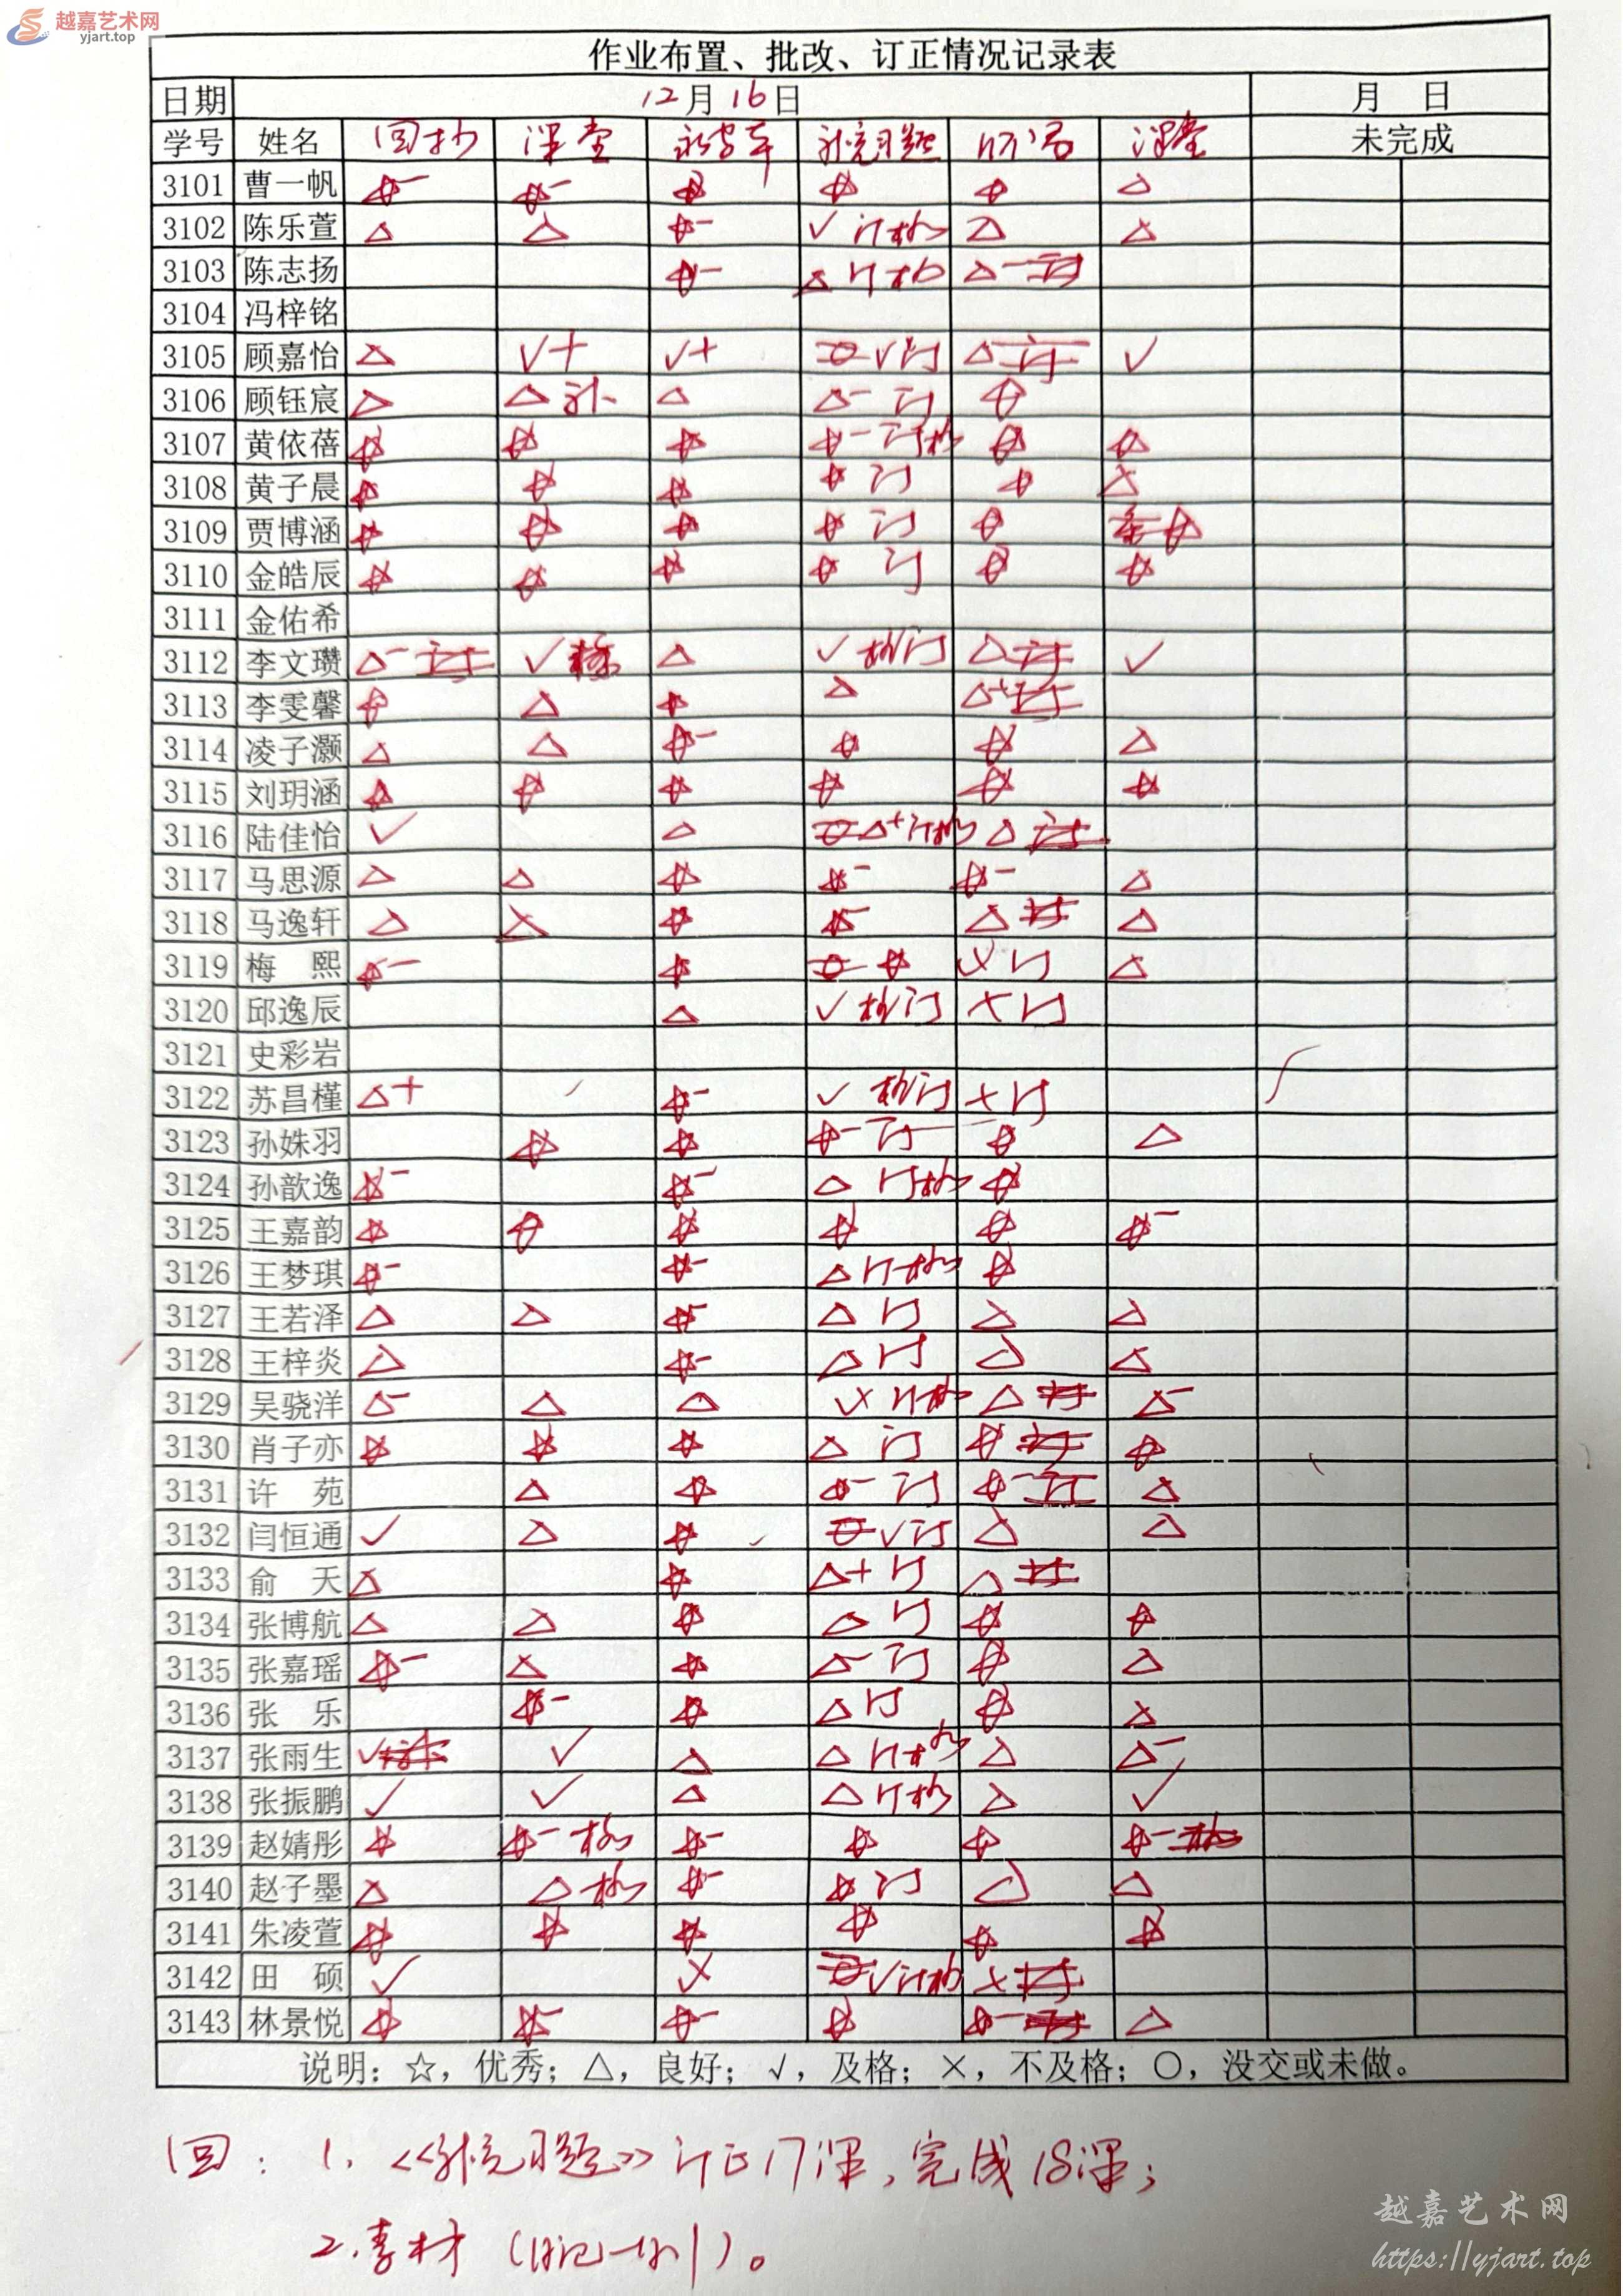 越嘉艺术网
yjart.top
作业布置、批改、订正情况记录表
日期 12月16日 月 日
学号 姓名 回抄 课堂 补充习题 课堂 未完成
3101 曹一帆 ☆- ☆- ☆ ☆ ☆ △
3102 陈乐萱 △ △ ☆- √ 订 △ △
3103 陈志扬 ☆- △ 订 △-
3104 冯梓铭
3105 顾嘉怡 △ √+ √+ √订 △ √
3106 顾钰宸 △ △ 补 △ △- 订 ☆
3107 黄依蓓 ☆ ☆ ☆ ☆- 订 ☆ ☆
3108 黄子晨 ☆ ☆ ☆ ☆ 订 ☆ △
3109 贾博涵 ☆ ☆ ☆ ☆ 订 ☆ ☆
3110 金皓辰 ☆ ☆ ☆ ☆ 订 ☆ ☆
3111 金佑希
3112 李文瓒 △- √ △ √ 订 △ √
3113 李雯馨 ☆ △ ☆ △ △+
3114 凌子灏 △ △ ☆- ☆ ☆ △
3115 刘玥涵 ☆ ☆ ☆ ☆ ☆ ☆
3116 陆佳怡 √ △ △+订 △
3117 马思源 △ △ ☆ ☆- ☆- △
3118 马逸轩 △ △ ☆ ☆- △ △
3119 梅 熙 ☆- ☆ ☆ × 订 △
3120 邱逸辰 △ √ 订 × 订
3121 史彩岩
3122 苏昌槿 △+ ☆- √ 订 × 订
3123 孙姝羽 ☆ ☆ ☆- 订 ☆ △
3124 孙歆逸 ☆- ☆- △ 订 ☆
3125 王嘉韵 ☆ ☆ ☆ ☆ ☆ ☆-
3126 王梦琪 ☆- ☆- △ 订 ☆
3127 王若泽 △ △ ☆- △ 订 △ △
3128 王梓炎 △ ☆- △ 订 △ △
3129 吴骁洋 △- △ △ × 订 △ △-
3130 肖子亦 ☆ ☆ ☆ △ 订 ☆ ☆
3131 许 苑 △ ☆ ☆- 订 ☆- △
3132 闫恒通 √ △ ☆ √订 △ △
3133 俞 天 △ ☆ △+ 订 △
3134 张博航 △ △ ☆ △ 订 ☆ ☆
3135 张嘉瑶 ☆- △ ☆ △- 订 ☆ △
3136 张 乐 ☆- ☆ △ 订 ☆ △
3137 张雨生 √ √ △ △ 订 △ △-
3138 张振鹏 √ √ △ △ 订 △ √
3139 赵婧彤 ☆ ☆- ☆- ☆ ☆ ☆-
3140 赵子墨 △ △ ☆- ☆ 订 △ △
3141 朱凌萱 ☆ ☆ ☆ ☆ ☆ ☆
3142 田 硕 √ × √订 ×
3143 林景悦 ☆ ☆- ☆- ☆ ☆- △
说明：☆，优秀；△，良好；√，及格；×，不及格；○，没交或未做。
回：1、《补充习题》订正17课，完成18课；
2.素材
越嘉艺术网
https://yjart.top